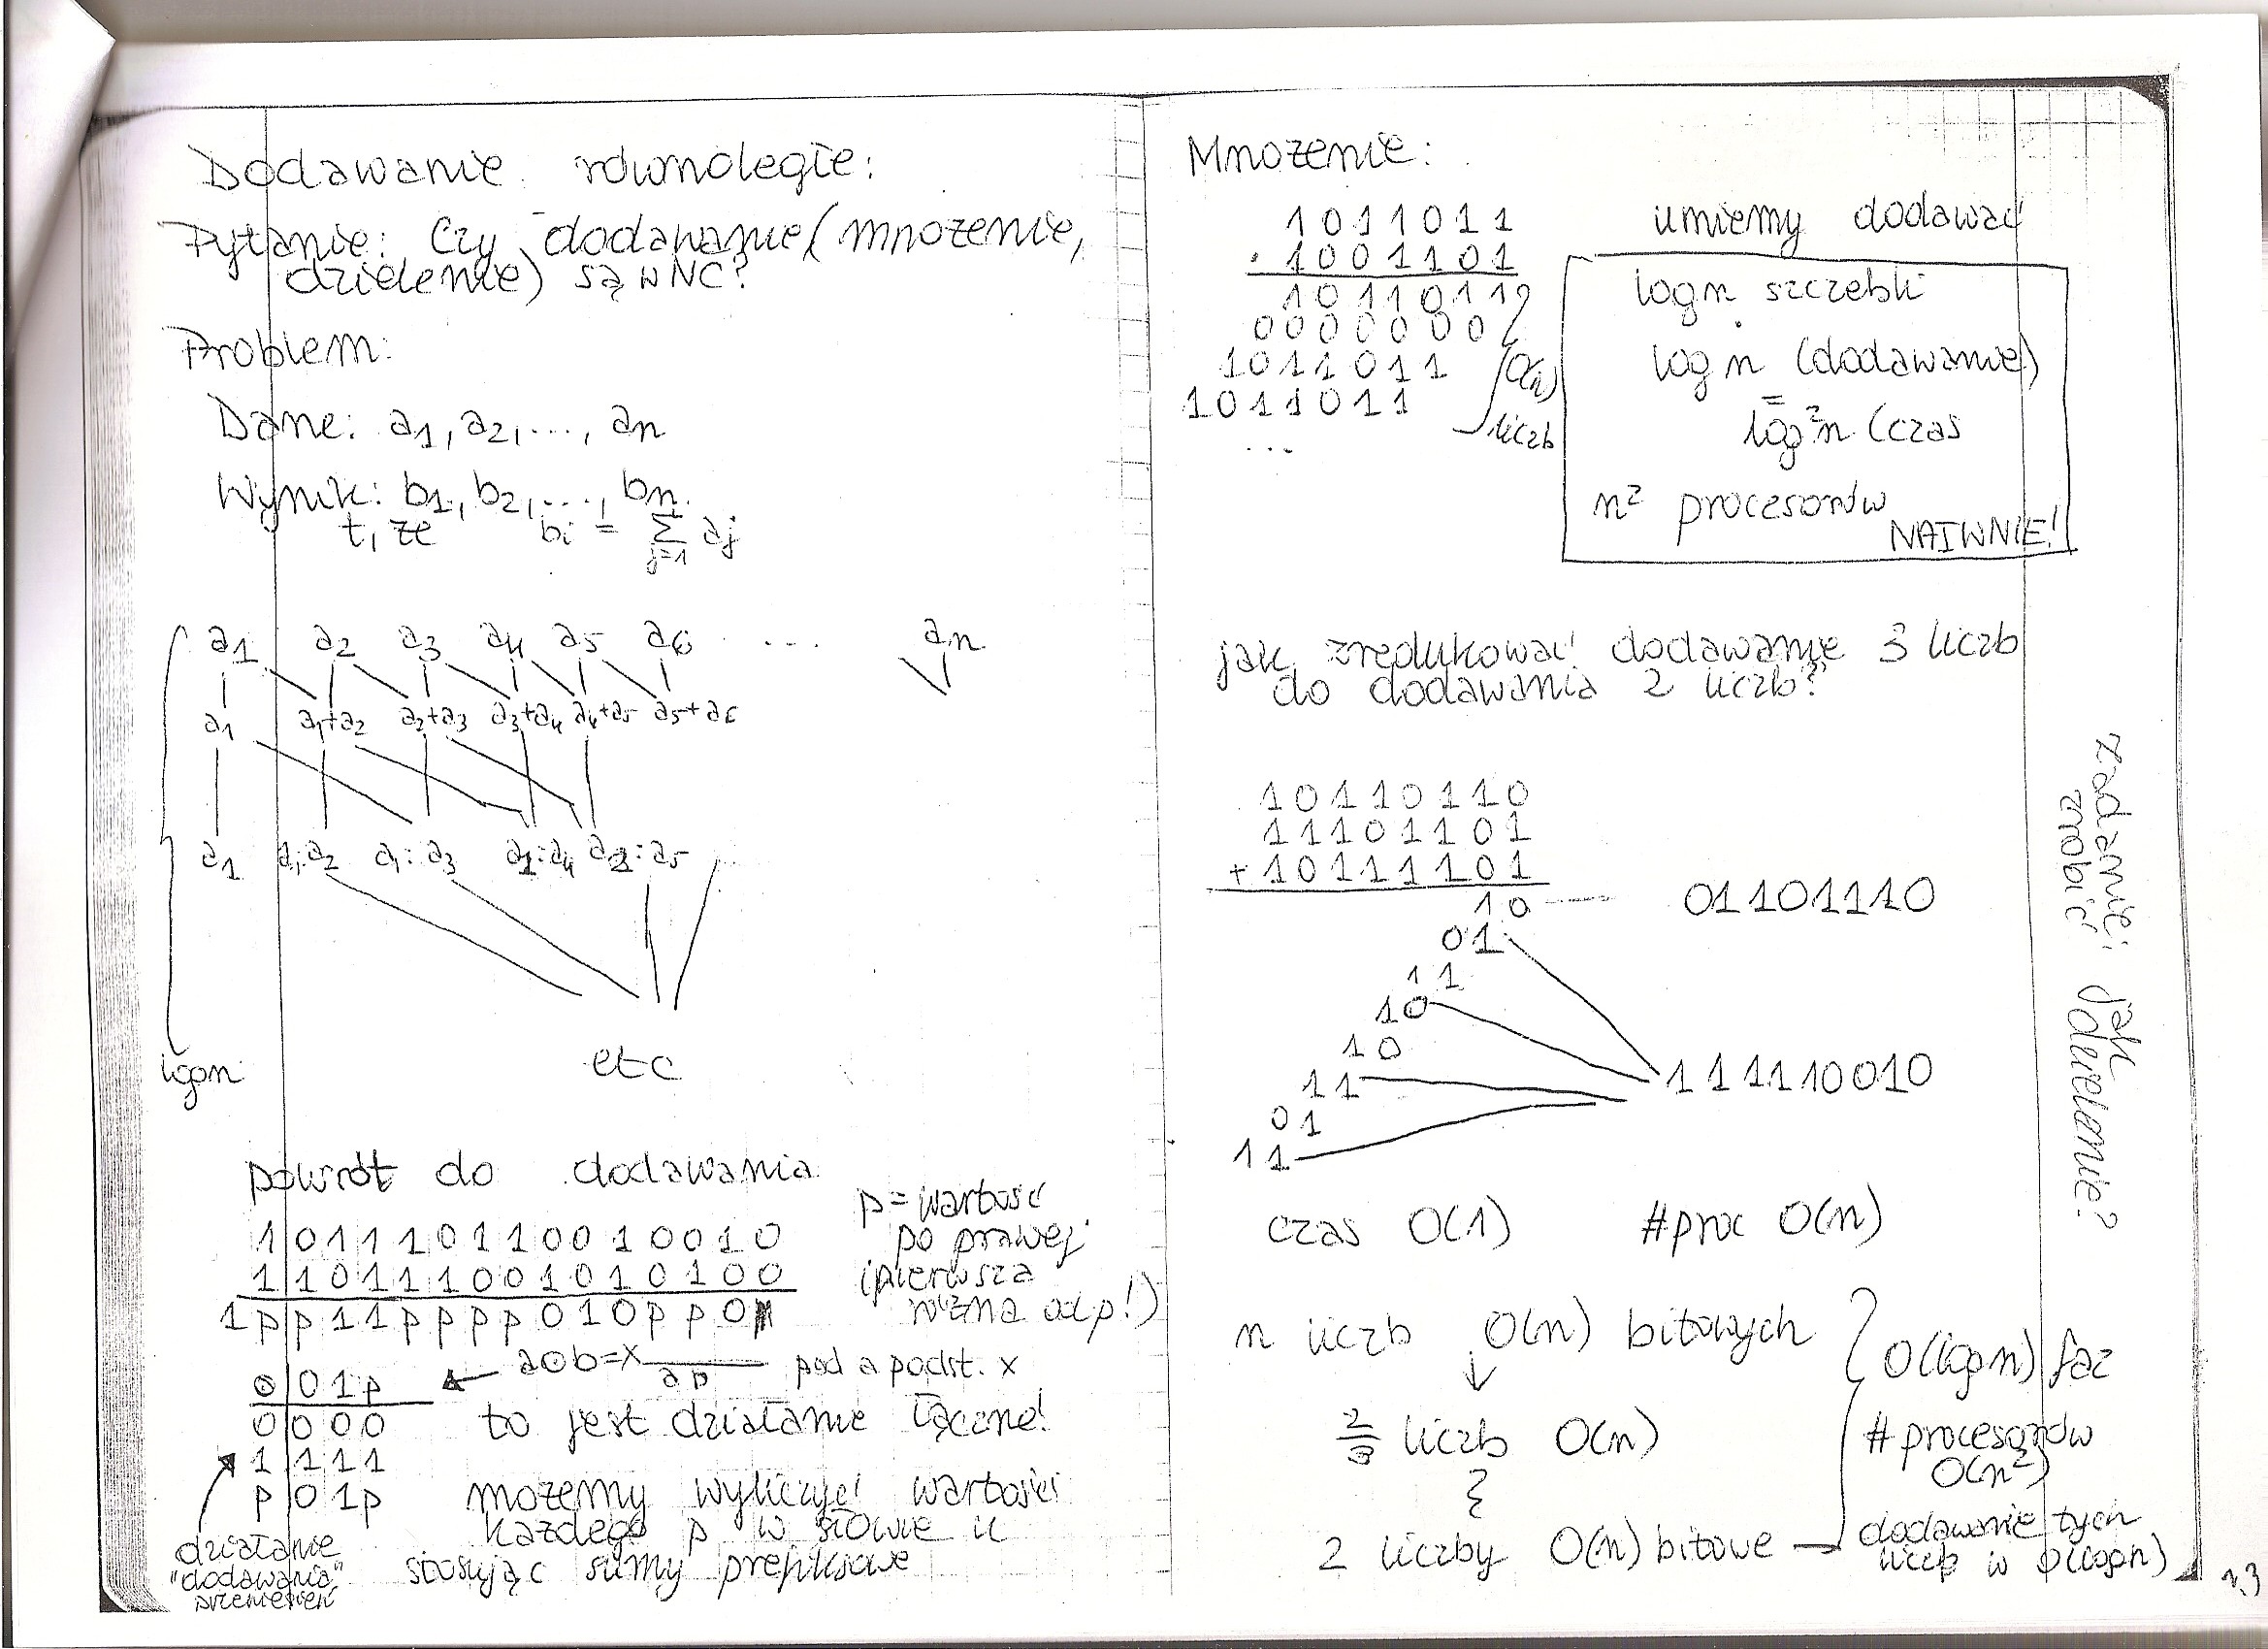 Dodawanie równoległe:
Pytanie: Czy dodawanie (mnożenie,
dzielenie) są w NC?
Problem:
Dane: a1, a2, ..., an
Wynik: b1, b2, ..., bn
t, że bi = i∑j=1 aj
a1 a2 a3 a4 a5 a6 ... an
a1 a1+a2 a2+a3 a3+a4 a4+a5 a5+a6
a1 a1:a2 a1:a3 a1:a4 a2:a5
logn
etc
powrót do dodawania
101110110010010
110111001010100
1pp11pppp010pp0
p = wartość
po prawej
(pierwsza
różna od p!)
⊙ 0 1 p
0 0 0 0
1 1 1 1
p 0 1 p
a⊙b=x
ab
pod a podst. x
to jest działanie łączne!
możemy wyliczyć wartości
każdego p w słowie u
stosując sumy prefiksowe
działanie
"dodawania"
przeniesień
Mnożenie:
1011011
· 1001101
1011011
0000000
1011011
1011011
...
O(n)
liczb
umiemy dodawać
logn szczebli
logn (dodawanie)
=
log²n (czas
n² procesorów
NAIWNIE!
jak zredukować dodawanie 3 liczb
do dodawania 2 liczb?
10110110
11101101
+ 10111101
10 01101110
01
11
10
10
11 111110010
01
11
czas O(1) #proc O(n)
n liczb O(n) bitowych
↓
2/3 liczb O(n)
2 liczby O(n) bitowe
O(logn) faz
#procesorów
O(n²)
dodawanie tych
liczb w O(logn)
zadanie: jak
zrobić dzielenie?